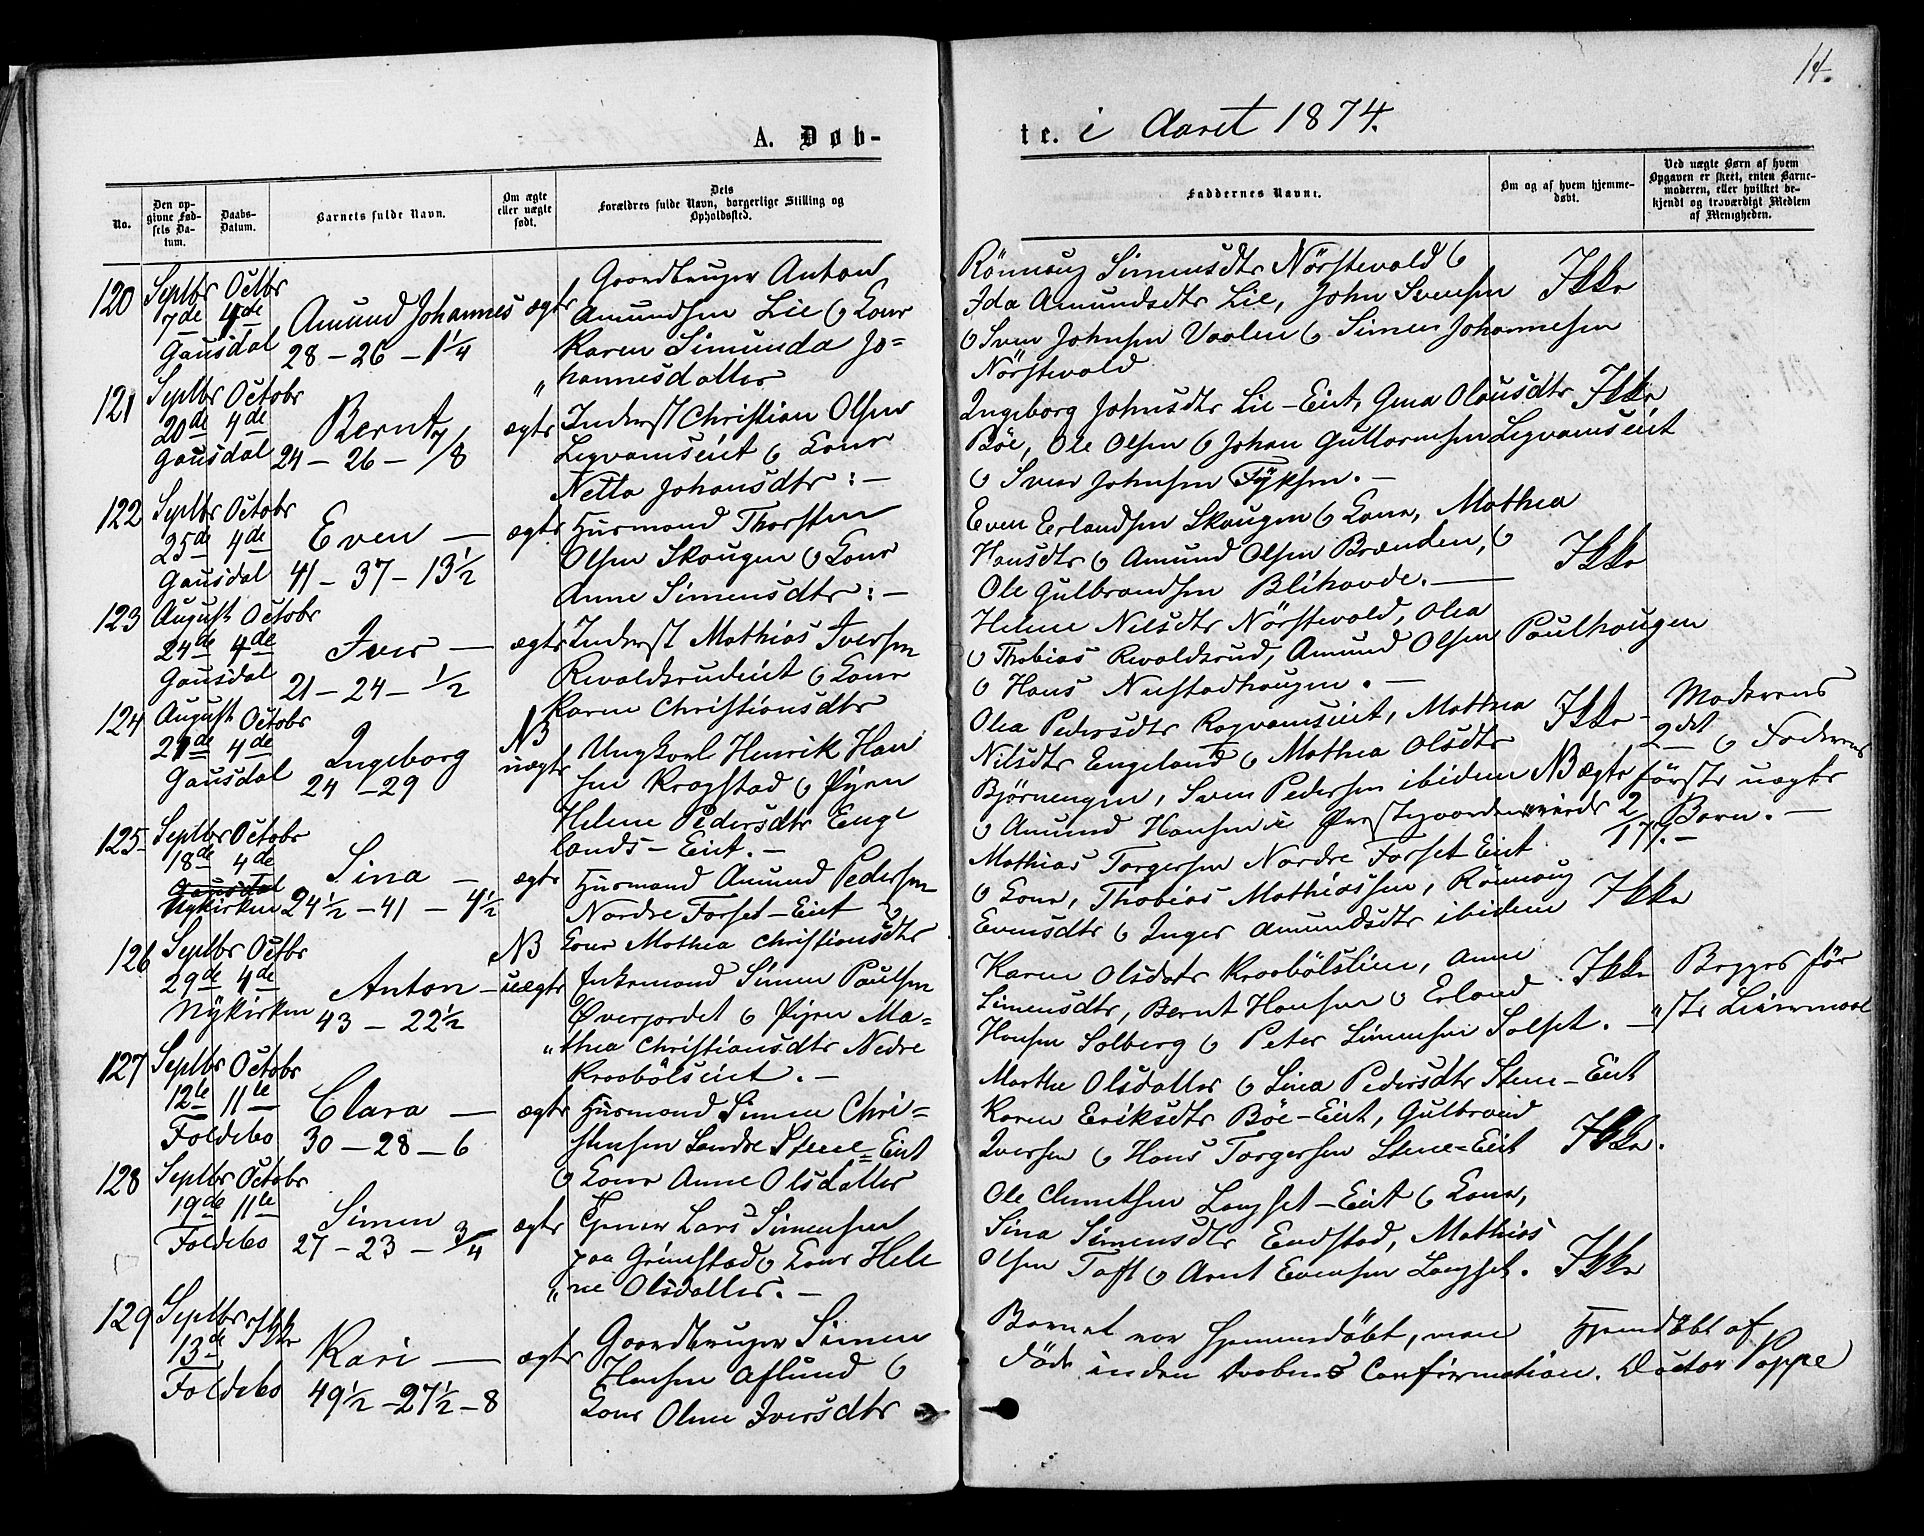 14.
A. Døb-
te. i Aaret 1874.
No.
Den opgivne Fødsels Datum.
Daabs-Datum.
Barnets fulde Navn.
Om ægte eller uægte født.
Dets Forældres fulde Navn, borgerlige Stilling og Opholdssted.
Faddernes Navne.
Om og af hvem hjemmedøbt.
Ved uægte Børn af hvem Opgaven er skeet, enten Barnemoderen, eller hvilket bekjendt og troværdigt Medlem af Menigheden.
120 Septbr 7de Gausdal Octbr 4de
Amund Johannes
28 – 26 – 1 1/4
ægte
Gaardbruger Anton
Amundsen Lie o Kone
Karen Simunda Jo=
"hannesdatter
Rönnaug Simensdtr Nörstevold o
Ida Amundsdtr Lie, John Svensen
o Sven Johnsen Vaalen o Simen Johannesen
Nörstevold
Ikke
121 Septbr 20de Gausdal Octobr 4de
Bernt
24 – 26 – 7/8
ægte
Inderst Christian Olsen
Legvamseiet o Kone
Netta Johansdtr: –
Ingeborg Johnsdtr Lie-Eiet, Gina Olausdtr
Böe, Ole Olsen o Johan Guttormsen Legvamseiet
o Sven Johnsen Fyksen. –
Ikke
122 Septbr 25de Gausdal Octobr 4de
Even –
41 – 37 – 13 1/2
ægte
Husmand Thorsten
Olsen Skougen o Kone
Anne Simensdtr: –
Even Erlandsen Skougen o Kone, Mathea
Hansdtr o Amund Olsen Brænden, o
Ole Gulbrandsen Blihovde. –
Ikke
123 August 24de Gausdal Octobr 4de
Iver –
21 – 24 – 1/2
ægte
Inderst Mathias Iversen
Revoldsrudeiet o Kone
Karen Christiansdtr
Helene Nilsdtr Nörstevold, Olea
o Thobias Revoldsrud, Amund Olsen Paulhougen
o Hans Neistadhougen. –
124 August 21de Gausdal Octobr 4de
Ingeborg
24 – 29
NB
uægte
Ungkarl Henrik Han
sen Kragstad o Pigen
Helene Pedersdtr Enge
lands-Eiet. –
Olea Pedersdtr Ragvamseiet, Mathea
Nilsdtr Engeland o Mathea Olsdtr
Björnengen, Sven Pedersen ibidem
o Amund Hansen i Præstegaarden
Ikke –
NB ægte
Moderens
2det o Faderens
förste uægte
Barn. –
125 Septbr 18de Gausdal Nykirken Octobr 4de
Sina –
24 1/2 – 41 – 4 1/2
ægte
Husmand Amund Pedersen
Nordre Forset-Eiet o
Kone Mathea Christiansdtr
Mathias Torgersen Nordre Forset Eiet
o Kone, Thobias Mathiassen, Rönnaug
Evensdtr o Inger Amundsdtr ibidem
Ikke
126 Septbr 29de Nykirken Octbr 4de
Anton –
43 – 22 1/2
NB
uægte
Enkemand Simen Paulsen
Överjordet o Pigen Ma=
"thea Christiansdtr Nedre
Kraabölseiet. –
Karen Olsdatr Kraabölslien, Anne
Simensdtr, Bernt Hansen o Erland
Hansen Solberg o Peter Simensen Solset. –
Ikke
Begges för
"ste Leiermaal
127 Septbr 12te Foldebo Octobr 11te
Clara –
30 – 28 – 6
ægte
Husmand Simen Chri=
stensen Söndre Steene=Eiet
o Kone Anne Olsdatter
Marthe Olsdatter o Sina Pedersdtr Stene-Eiet
Karen Eriksdtr Böe-Eiet, Gulbrand
Iversen o Hans Torgersen Stene-Eiet
Ikke.
128 Septbr 19de Foldebo Octobr 11te
Simen
27 – 23 – 3/4
ægte
Tjener Lars Simensen
paa Grimstad o Kone Hele
"ne Olsdatter. –
Ole Clemetsen Langset-Eiet o Kone,
Sina Simensdtr Endstad, Mathias
Olsen Toft o Arnt Evensen Langset.
Ikke
129 Septbr 13de Foldebo Ikke
Kari –
49 1/2 – 27 1/2 – 8
ægte
Gaardbruger Simen
Hansen Aflund o
Kone Oline Iversdtr
Barnet var hjemmedöbt, men
döde inden Daabens Confirmation.
Hjemdöbt af
Doctor Poppe